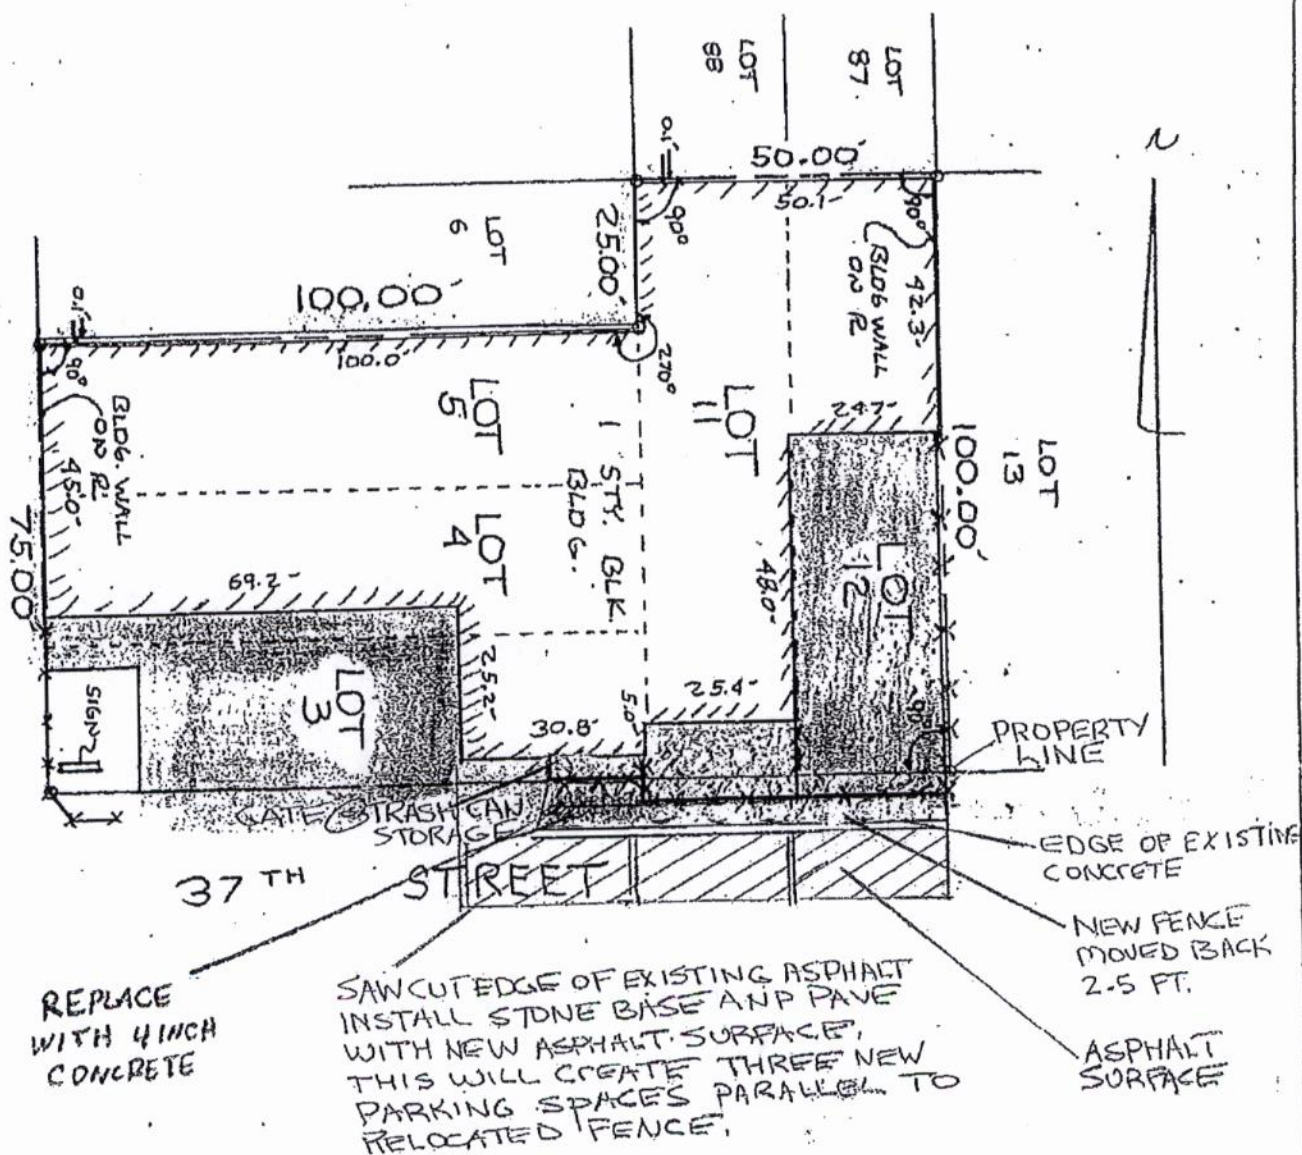 LOT
88
LOT
87
N
0.1'
50.00'
50.1-
90°
90°
LOT
6
25.00'
BLDG WALL
ON ℞
42.3-
100.00'
0.1'
100.0'
270°
90°
BLDG. WALL
ON ℞
45.0-
LOT
5
LOT
11
24.7-
100.00'
LOT
13
1 STY. BLK.
BLDG.
LOT
4
75.00'
69.2-
48.0-
LOT
12
LOT
3
SIGN
25.2-
30.8-
5.0-
25.4-
90°
PROPERTY
LINE
GATE @ TRASH CAN
STORAGE
37TH STREET
EDGE OF EXISTING
CONCRETE
NEW FENCE
MOVED BACK
2.5 FT.
ASPHALT
SURFACE
REPLACE
WITH 4 INCH
CONCRETE
SAWCUT EDGE OF EXISTING ASPHALT
INSTALL STONE BASE AND PAVE
WITH NEW ASPHALT SURFACE.
THIS WILL CREATE THREE NEW
PARKING SPACES PARALLEL TO
RELOCATED FENCE.